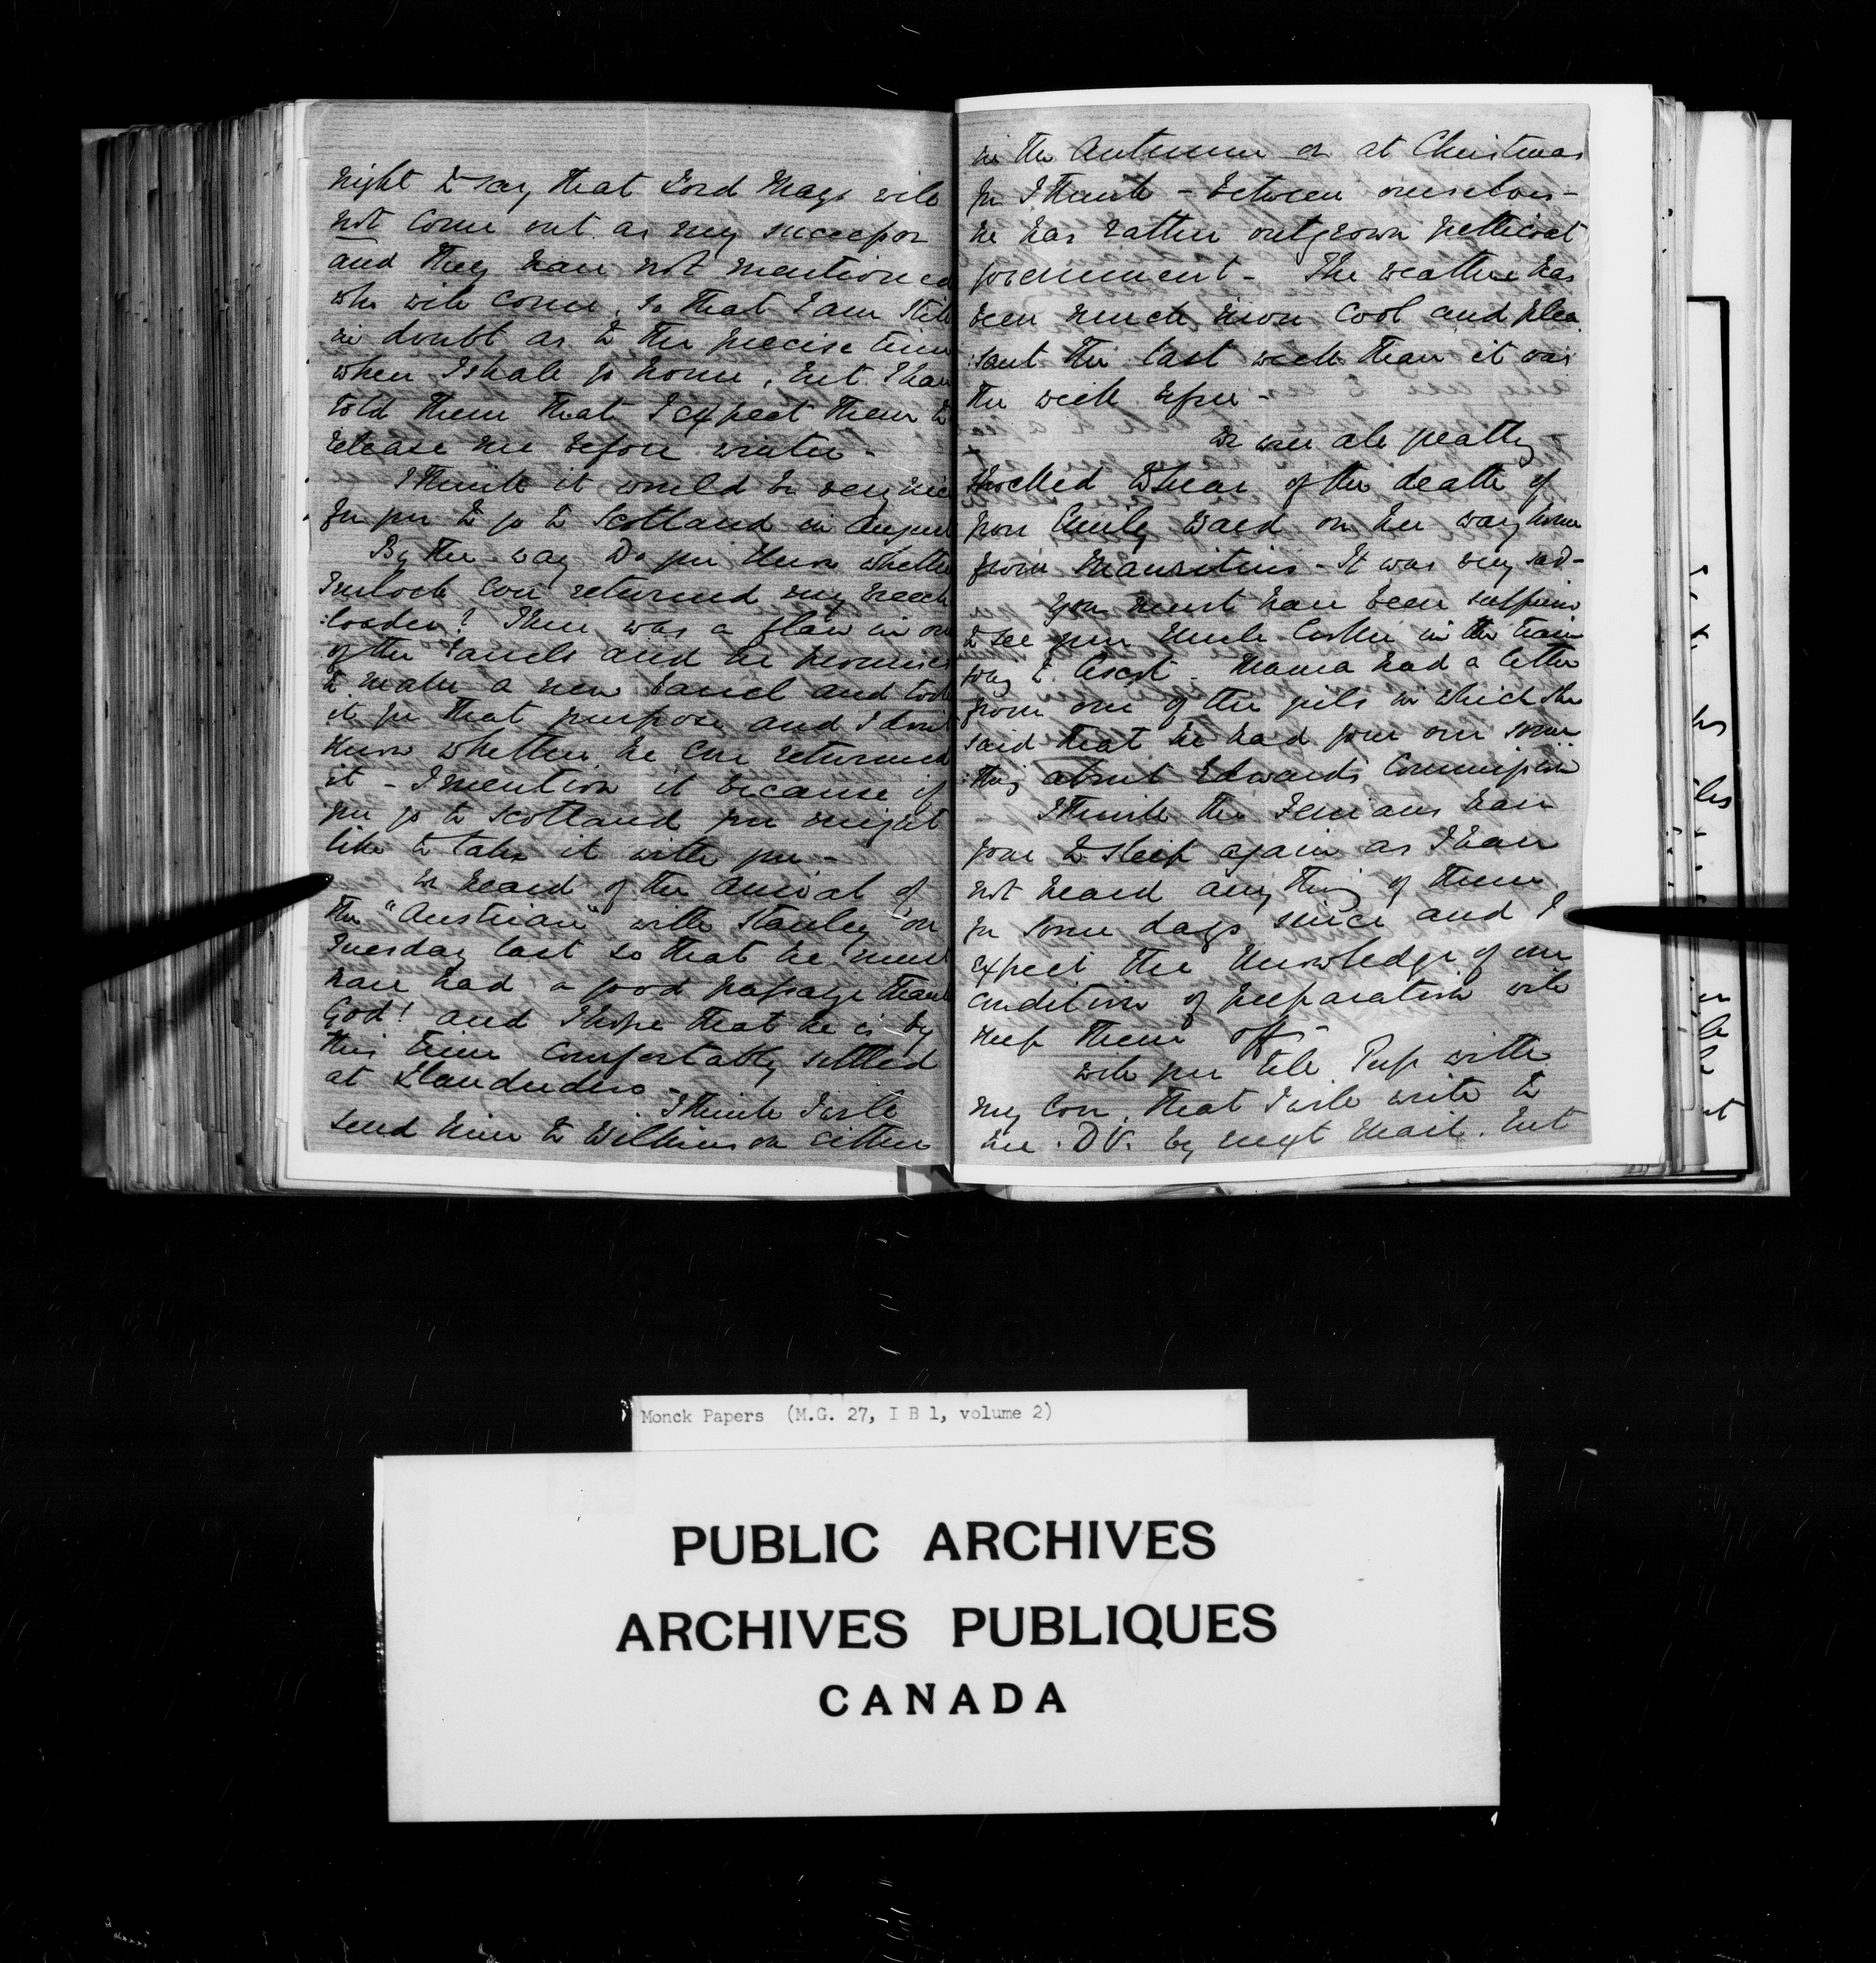 night to say that Lord Mayo will
not come out as my successor
and they have not mentioned
who will come, so that I am still
in doubt as to the precise time
when I shall go home, but I have
told them that I expect them to
release me before winter -
I think it would be very nice
for you to go to Scotland in August
By the way Do you know whether
ever returned my breech
:loader? There was a flaw in one
of the barrels and he promised
to make a new barrel and took
it for that purpose and I don't
know whether he ever returned
it - I mention it because if
you go to Scotland you might
like to take it with you -
We heard of the arrival of
the "Austrian" with Stanley on
Tuesday last so that he must
have had a good passage thank
God! and I hope that he is by
this time comfortably settled
at
I think I will
send him to Wilkinson either
in the Autumn or at Christmas
for I think - between ourselves -
he has rather outgrown petticoat
government - The weather has
been much more cool and plea
:sant this last week than it was
the week before -
We were all greatly
shocked to hear of the death of
poor Emily Ward on her way home
from Mauritius - It was very sad -
You must have been surprised
to see your Uncle in the train
going to Ascot - Mama had a letter
from one of the girls in which she
said that he had gone over some
:thing about Edward's Commission
I think the Fenians have
gone to sleep again as I have
not heard any thing of them
for some days since and I
expect the knowledge of our
condition of preparation will
keep them off -
Will you tell Puss with
my love, that I will write to
her. D.V. by next mail. but
Monck Papers (M.G. 27, I B 1, volume 2)
PUBLIC ARCHIVES
ARCHIVES PUBLIQUES
CANADA